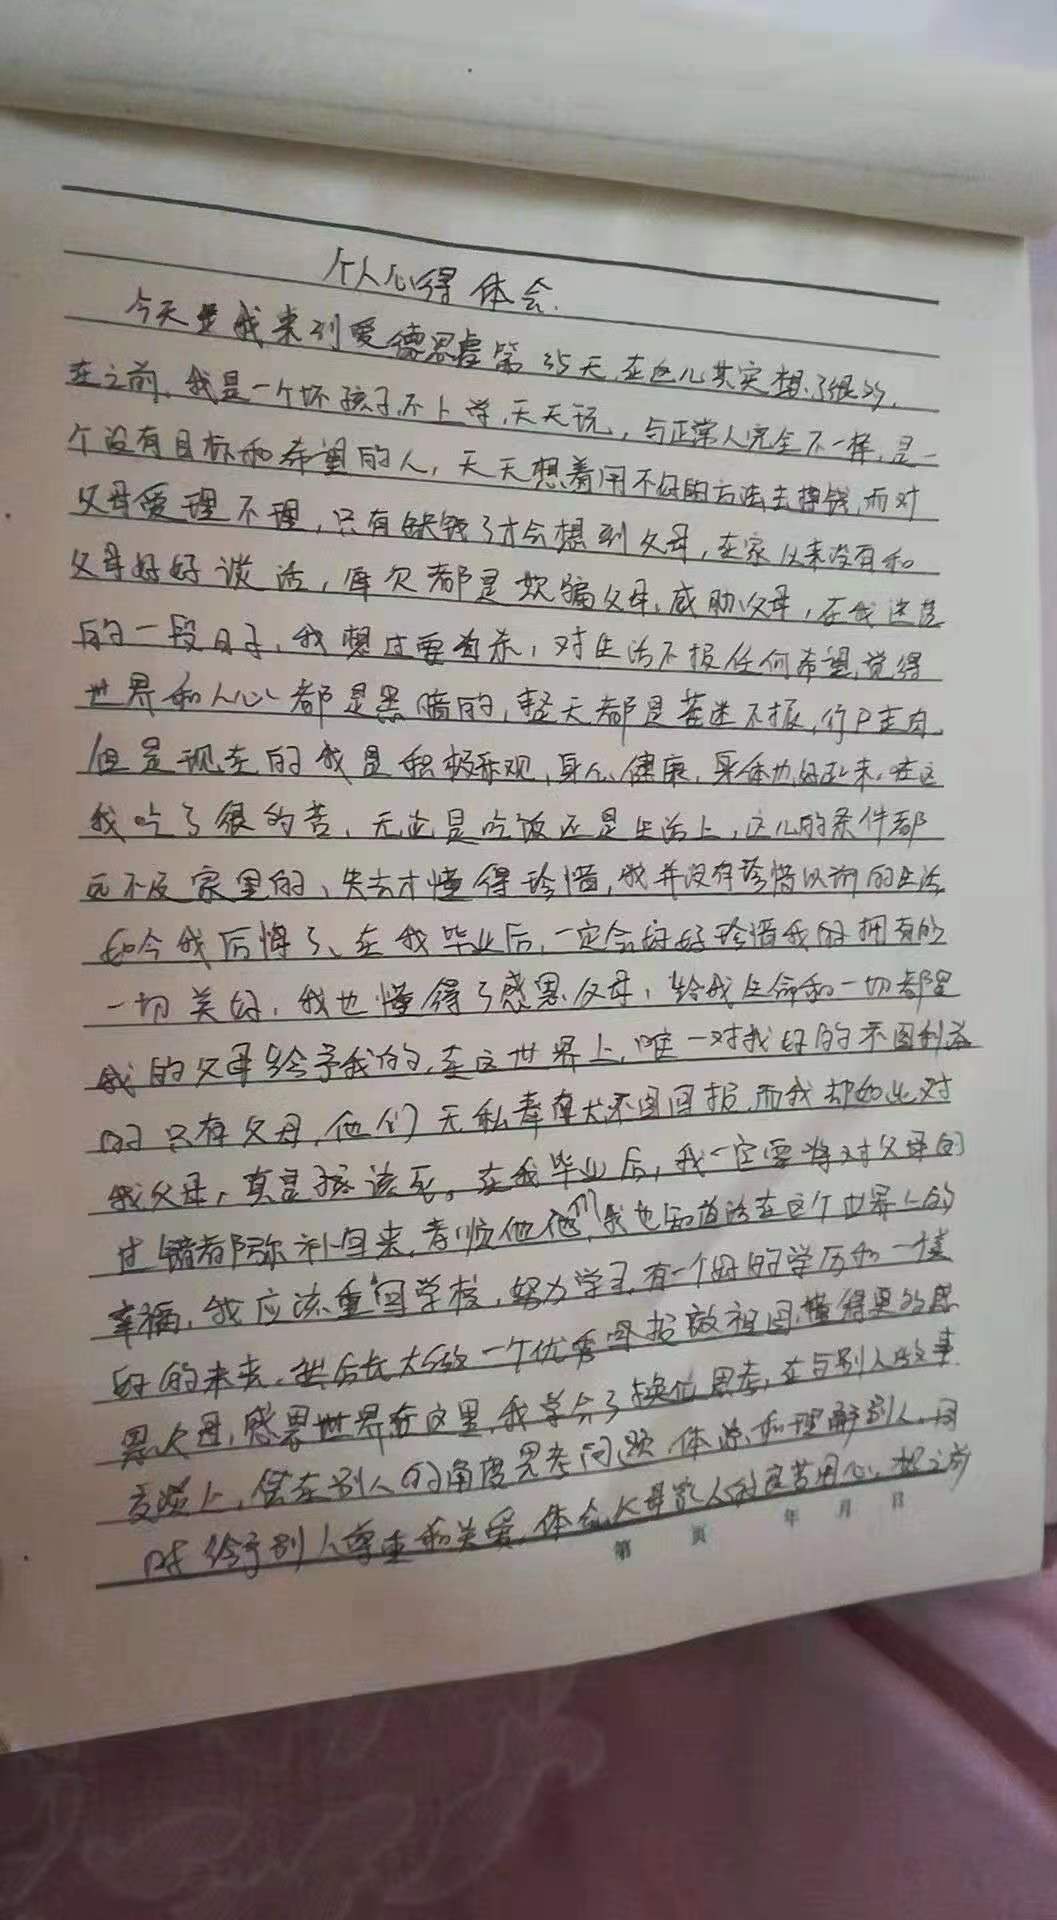 个人心得体会.
今天是我来到爱德思睿第35天,在这儿其实想了很多,
在之前,我是一个坏孩子,不上学,天天玩,与正常人完全不一样,是一
个没有目标和希望的人,天天想着用不好的方法去挣钱,而对
父母爱理不理,只有缺钱了才会想到父母,在家从来没有和
父母好好谈话,每次都是欺骗父母,威胁父母,在我迷茫
的一段日子,我想过要自杀,对生活不报任何希望,觉得
世界和人心都是黑暗的,整天都是萎迷不振,行尸走肉,
但是现在的我是积极乐观,身心健康,身体也好起来,在这
我吃了很多苦,无论是吃饭还是生活上,这儿的条件都
远不及家里的,失去才懂得珍惜,我并没有珍惜以前的生活
如今我后悔了,在我毕业后,一定会好好珍惜我的拥有的
一切美好,我也懂得了感恩父母,给我生命和一切都是
我的父母给予我的,在这世界上,唯一对我好的不图利益
的只有父母,他们无私奉献不图回报,而我却如此对
我父母,真是该死。在我毕业后,我一定要将对父母的
过错都弥补回来,孝顺他们,我也知道活在这个世界上的
幸福,我应该重回学校,努力学习,有一个好的学历和一个
好的未来,然后长大做一个优秀 报效祖国,懂得更多感
恩父母,感恩世界在这里,我学会了换位思考,在与别人做事
交谈上,站在别人的角度思考问题,体谅和理解别人,同
时给予别人尊重和关爱,体会父母家人的良苦用心,想之前
第 页 年 月 日